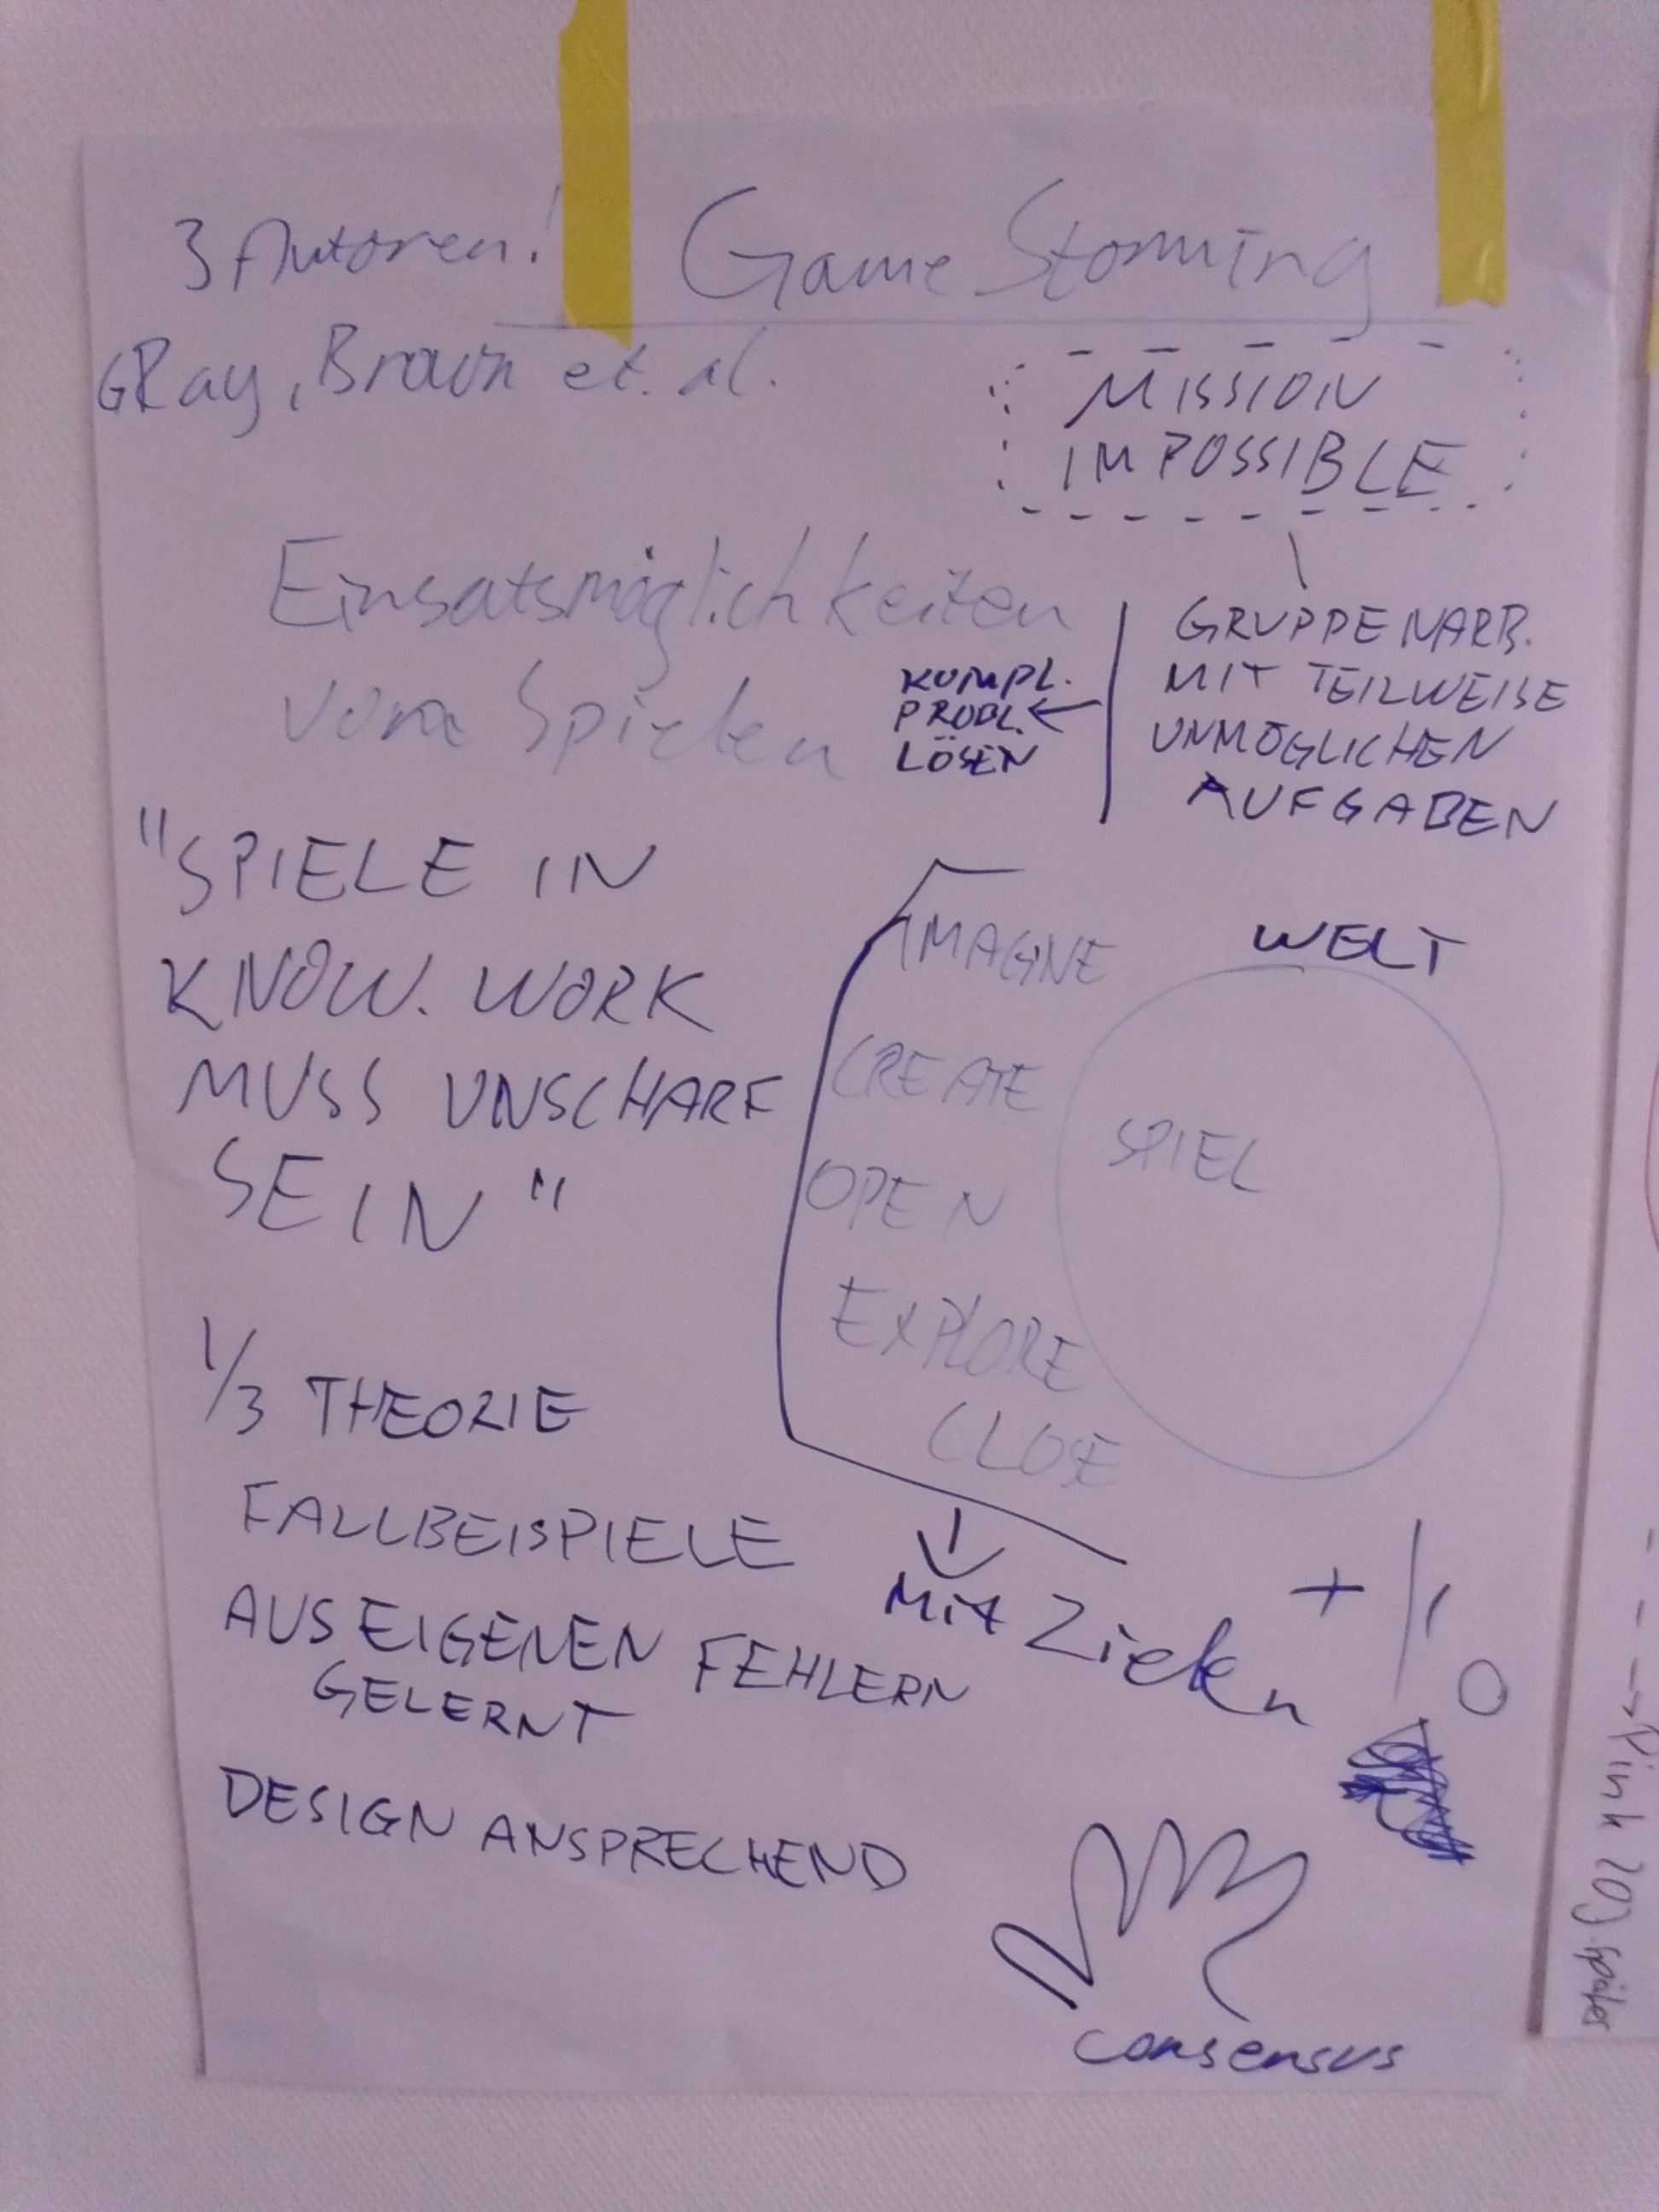 3 Autoren!
Game Storming
GRay, Brown et. al.
MISSION
IMPOSSIBLE
Einsatsmöglichkeiten
von Spielen
GRUPPENARB.
MIT TEILWEISE
UNMÖGLICHEN
AUFGABEN
KOMPL.
PROBL.
LÖSEN
"SPIELE IN
KNOW. WORK
MUSS UNSCHARF
SEIN"
IMAGINE
CREATE
OPEN
EXPLORE
CLOSE
WELT
SPIEL
Mit Zielen
1/3 THEORIE
FALLBEISPIELE
AUS EIGENEN FEHLERN
GELERNT
DESIGN ANSPRECHEND
consensus
Pink später